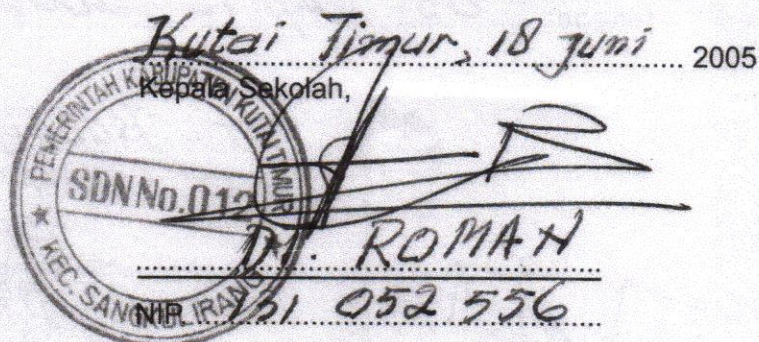 Kutai Timur, 18 Juni 2005
Kepala Sekolah,
PEMERINTAH KABUPATEN KUTAI TIMUR
SDN No.012
KEC. SANGKULIRANG
DM. ROMAN
NIP. 131 052 556